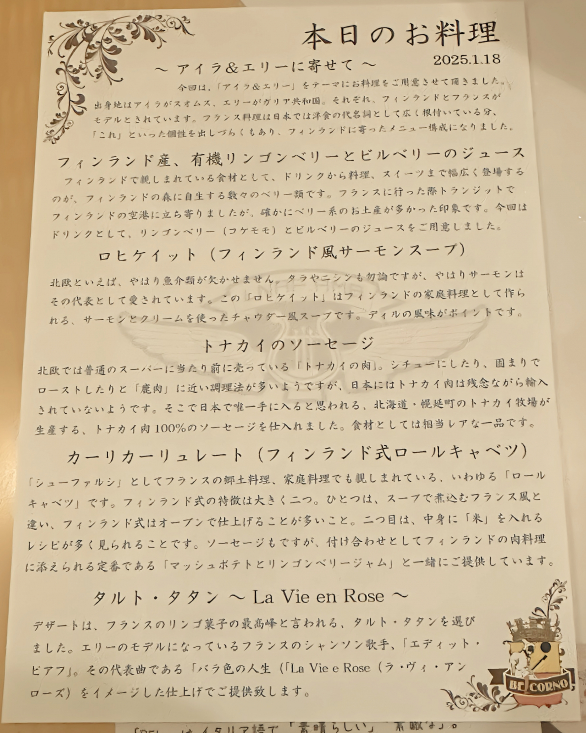 本日のお料理
2025.1.18
～ アイラ&エリーに寄せて ～
今回は、「アイラ&エリー」をテーマにお料理をご用意させて頂きました。
出身地はアイラがスオムス、エリーがガリア共和国。それぞれ、フィンランドとフランスが
モデルとされています。フランス料理は日本では洋食の代名詞として広く根付いている分、
「これ」といった個性を出しづらくもあり、フィンランドに寄ったメニュー構成になりました。
フィンランド産、有機リンゴンベリーとビルベリーのジュース
フィンランドで親しまれている食材として、ドリンクから料理、スイーツまで幅広く登場する
のが、フィンランドの森に自生する数々のベリー類です。フランスに行った際トランジットで
フィンランドの空港に立ち寄りましたが、確かにベリー系のお土産が多かった印象です。今回は
ドリンクとして、リンゴンベリー（コケモモ）とビルベリーのジュースをご用意しました。
ロヒケイット（フィンランド風サーモンスープ）
北欧といえば、やはり魚介類が欠かせません。タラやニシンも勿論ですが、やはりサーモンは
その代表として愛されています。この「ロヒケイット」はフィンランドの家庭料理として作ら
れる、サーモンとクリームを使ったチャウダー風スープです。ディルの風味がポイントです。
トナカイのソーセージ
北欧では普通のスーパーに当たり前に売っている「トナカイの肉」。シチューにしたり、固まりで
ローストしたりと「鹿肉」に近い調理法が多いようですが、日本にはトナカイ肉は残念ながら輸入
されていないようです。そこで日本で唯一手に入ると思われる、北海道・幌延町のトナカイ牧場が
生産する、トナカイ肉100%のソーセージを仕入れました。食材としては相当レアな一品です。
カーリカーリュレート（フィンランド式ロールキャベツ）
「シューファルシ」としてフランスの郷土料理、家庭料理でも親しまれている、いわゆる「ロール
キャベツ」です。フィンランド式の特徴は大きく二つ。ひとつは、スープで煮込むフランス風と
違い、フィンランド式はオーブンで仕上げることが多いこと。二つ目は、中身に「米」を入れる
レシピが多く見られることです。ソーセージもですが、付け合わせとしてフィンランドの肉料理
に添えられる定番である「マッシュポテトとリンゴンベリージャム」と一緒にご提供しています。
タルト・タタン ～ La Vie en Rose ～
デザートは、フランスのリンゴ菓子の最高峰と言われる、タルト・タタンを選び
ました。エリーのモデルになっているフランスのシャンソン歌手、「エディット・
ピアフ」。その代表曲である「バラ色の人生（「La Vie e Rose（ラ・ヴィ・アン
ローズ）をイメージした仕上げでご提供致します。
BEL CORNO
はイタリア語で「素晴らしい」「素敵な」。